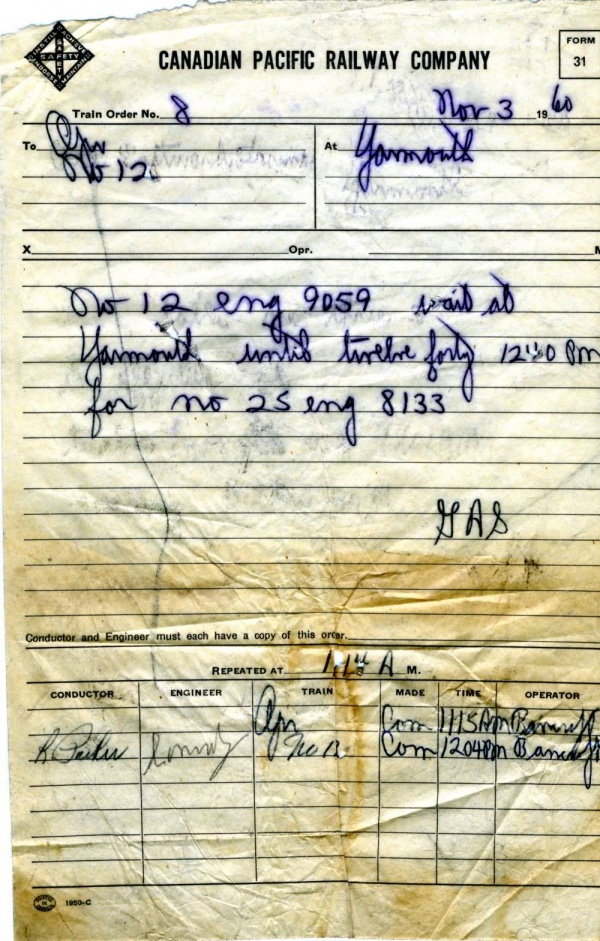 CANADIAN PACIFIC RAILWAY COMPANY
FORM
31
Train Order No. 8 Nov 3 1960
To Opr At Yarmouth
No 12
X Opr. M
No 12 eng 9059 wait at
Yarmouth until twelve forty 12 40 PM
for no 25 eng 8133
GAS
Conductor and Engineer must each have a copy of this order.
REPEATED AT A M.
CONDUCTOR ENGINEER TRAIN MADE TIME OPERATOR
Opr Com 1115AM Bancroft
R Parker No 12 Com 1204PM Bancroft
1950-C